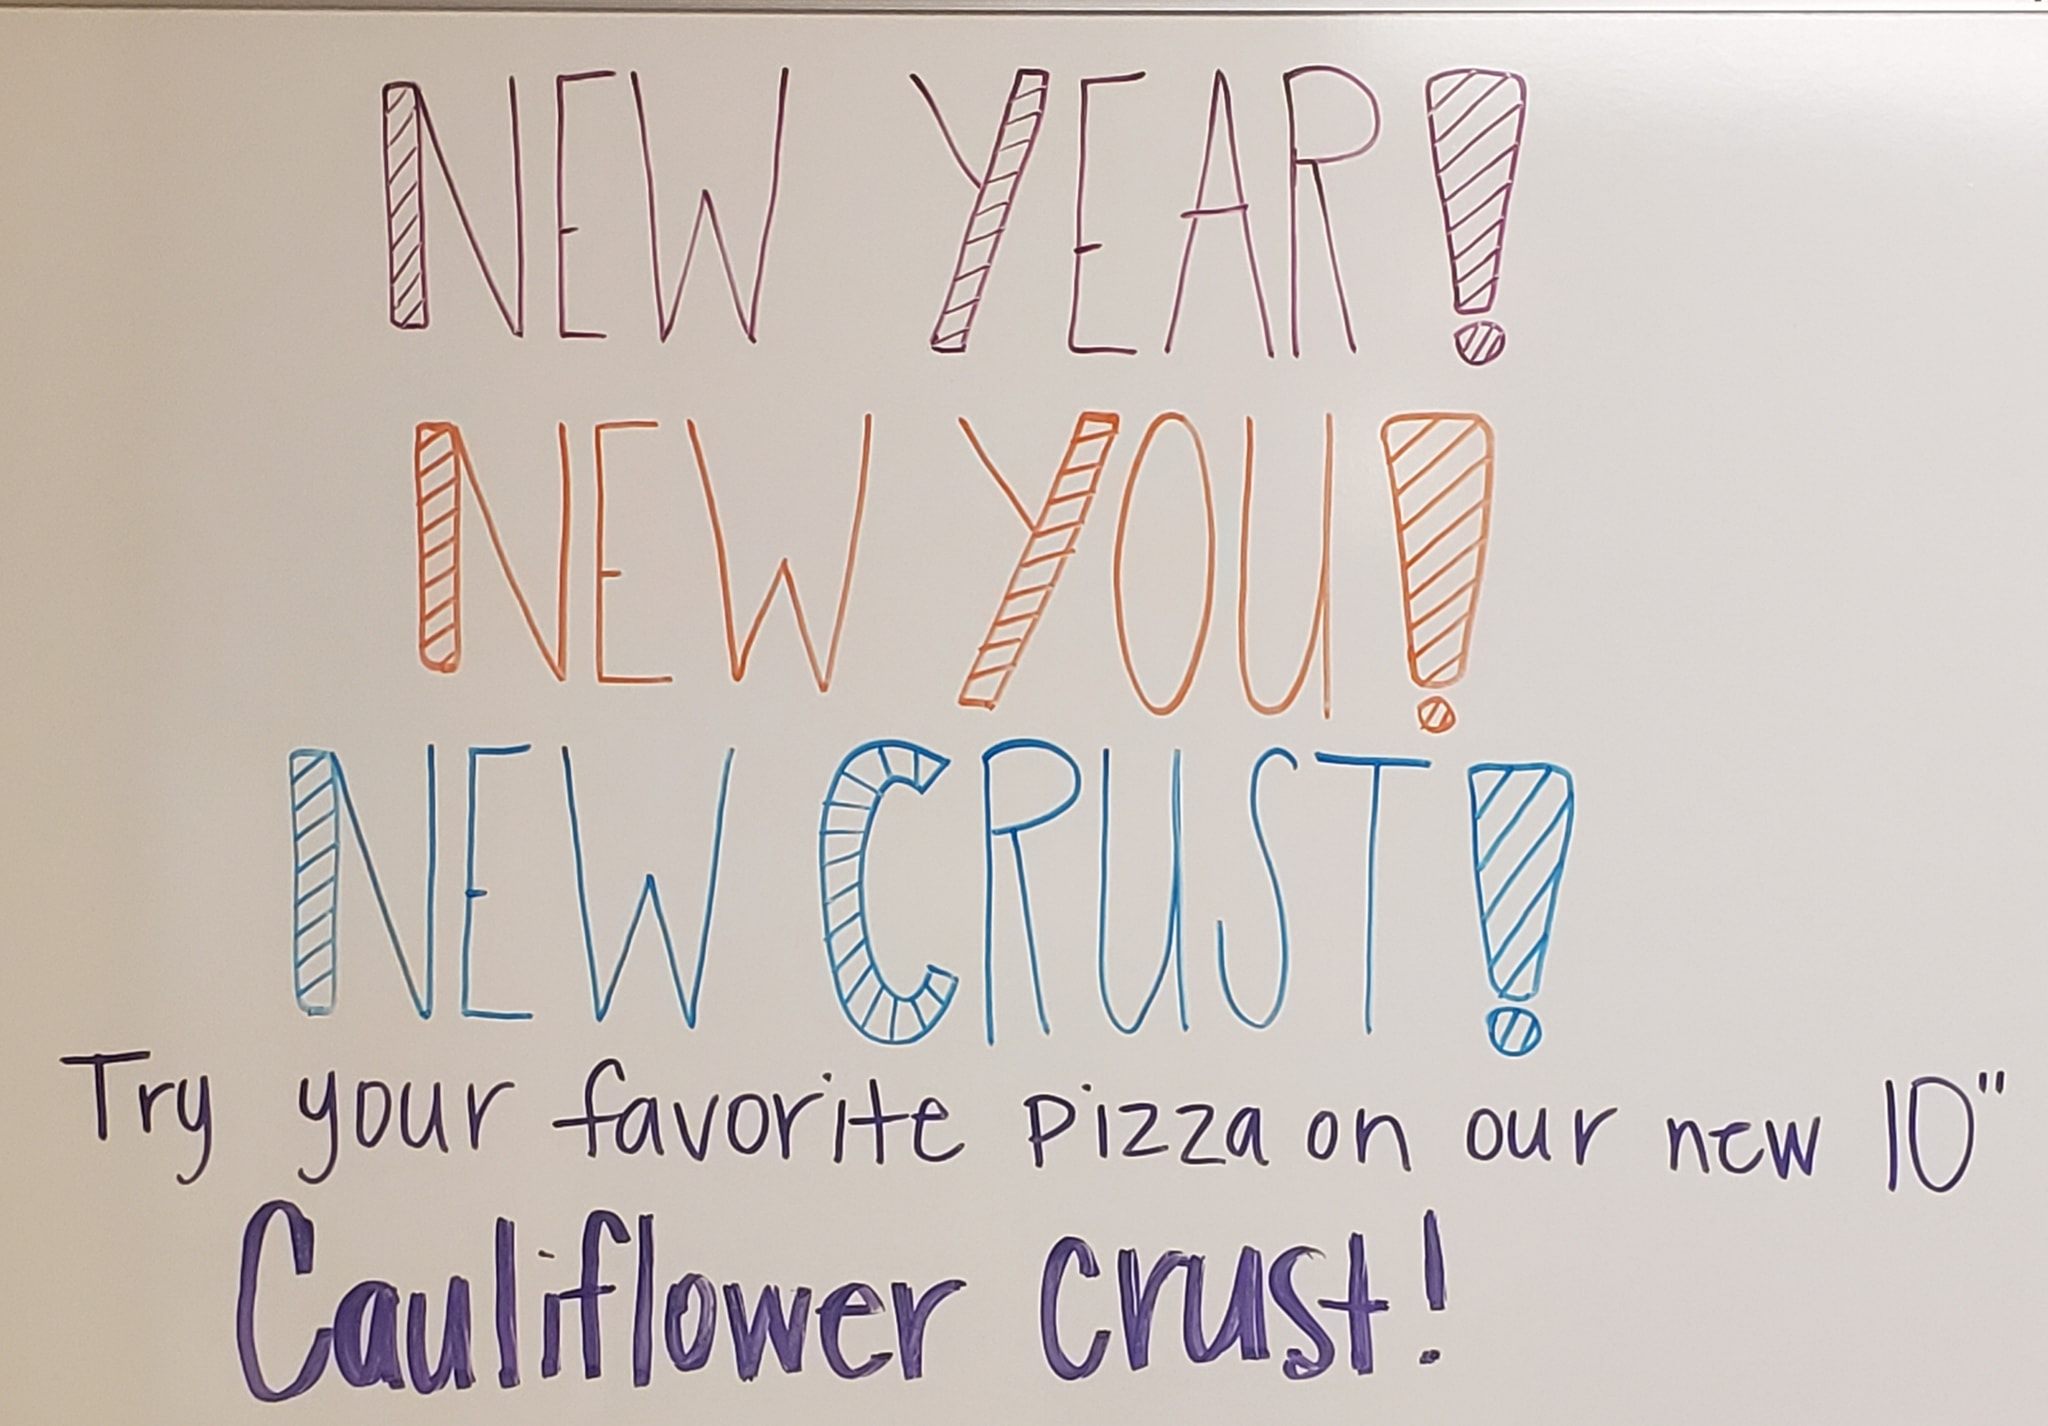 NEW YEAR!
NEW YOU!
NEW CRUST!
Try your favorite pizza on our new 10"
Cauliflower crust!